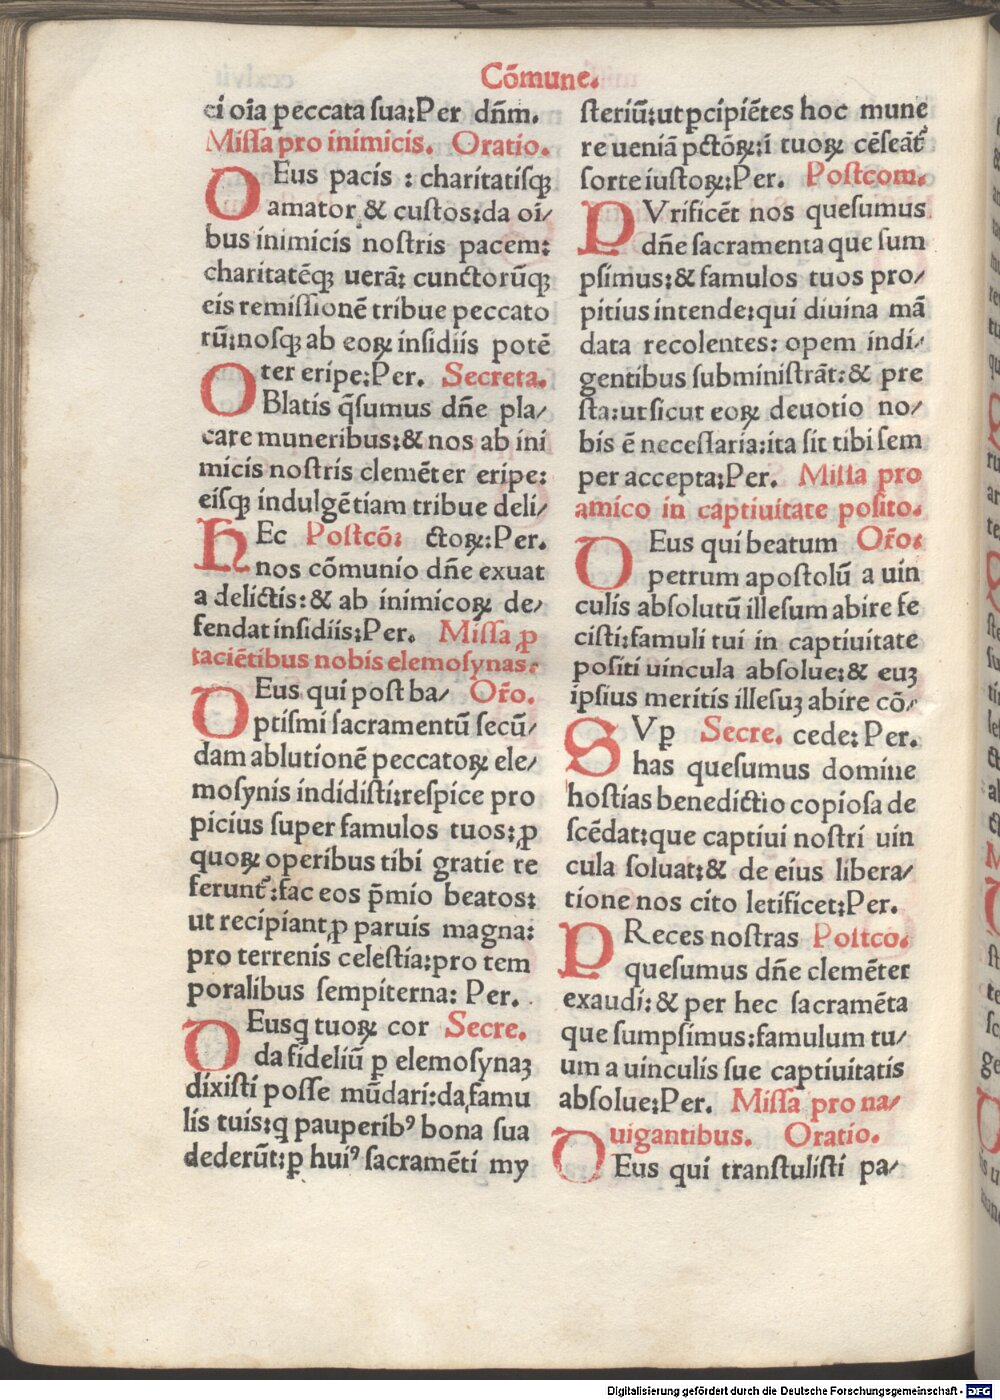 Cōmune.
ei oīa peccata sua:Per dn̄m.
Missa pro inimicis. Oratio.
DEus pacis : charitatisq̢
amator & custos:da oi/
bus inimicis nostris pacem:
charitatēq̢ uerā: cunctorūq̢
eis remissionē tribue peccato
rū:nosq̢ ab eoꝝ insidiis potē
ter eripe:Per. Secreta.
OBlatis q̄sumus dn̄e pla/
care muneribus:& nos ab ini
micis nostris clemēter eripe:
eisq̢ indulgētiam tribue deli/
HEc Postcō: ctoꝝ:Per.
nos cōmunio dn̄e exuat
a delictis:& ab inimicoꝝ de/
fendat insidiis:Per. Missa ꝓ
faciētibus nobis elemosynas.
DEus qui post ba/ Or̄o.
ptismi sacramentū secū/
dam ablutionē peccatoꝝ ele/
mosynis indidisti:respice pro
picius super famulos tuos:ꝓ
quoꝝ operibus tibi gratie re
ferunt᷑:fac eos p̄mio beatos:
ut recipiant ꝓ paruis magna:
pro terrenis celestia:pro tem
poralibus sempiterna: Per.
DEus q tuoꝝ cor Secre.
da fideliū ꝑ elemosynaꝫ
dixisti posse mūdari:da famu
lis tuis:q pauperibꝰ bona sua
dederūt:ꝑ huiꝰ sacramēti my
steriū:ut ꝑcipiētes hoc mune
re ueniā pctōꝝ:ī tuoꝝ cēseāt᷑
sorte iustoꝝ:Per. Postcom.
PVrificēt nos quesumus
dn̄e sacramenta que sum
psimus:& famulos tuos pro/
pitius intende:qui diuina mā
data recolentes: opem indi/
gentibus subministrāt:& pre
sta:ut sicut eoꝝ deuotio no/
bis ē necessaria:ita sit tibi sem
per accepta:Per. Missa pro
amico in captiuitate posito.
DEus qui beatum Or̄o:
petrum apostolū a uin
culis absolutū illesum abire fe
cisti:famuli tui in captiuitate
positi uincula absolue:& euꝫ
ipsius meritis illesuꝫ abire cō/
SVꝑ Secre. cede: Per.
has quesumus domine
hostias benedictio copiosa de
scēdat:que captiui nostri uin
cula soluat:& de eius libera/
tione nos cito letificet:Per.
PReces nostras Postco.
quesumus dn̄e clemēter
exaudi:& per hec sacramēta
que sumpsimus:famulum tu/
um a uinculis sue captiuitatis
absolue:Per. Missa pro na/
uigantibus. Oratio.
DEus qui transtulisti pa/
Digitalisierung gefördert durch die Deutsche Forschungsgemeinschaft - DFG